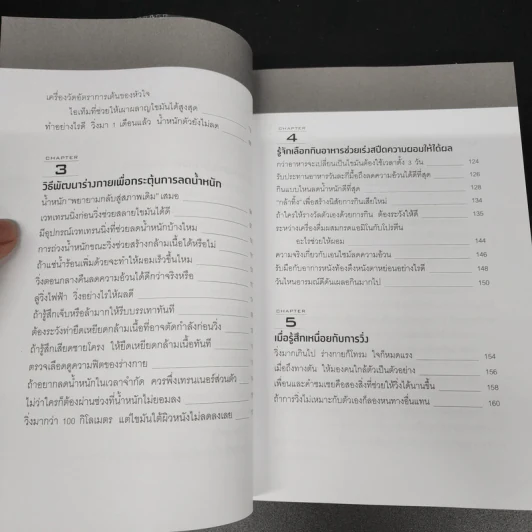 เครื่องวัดอัตราการเต้นของหัวใจ
ไอเท็มที่ช่วยให้เผาผลาญไขมันได้สูงสุด
ทำอย่างไรดี วิ่งมา 1 เดือนแล้ว น้ำหนักตัวยังไม่ลด
CHAPTER
3
วิธีพัฒนาร่างกายเพื่อกระตุ้นการลดน้ำหนัก
น้ำหนัก "พยายามกลับสู่สภาพเดิม" เสมอ
เวทเทรนนิ่งก่อนวิ่งช่วยสลายไขมันได้ดี
มีอุปกรณ์เวทเทรนนิ่งที่ช่วยลดน้ำหนักบ้างไหม
การถ่วงน้ำหนักขณะวิ่งช่วยสร้างกล้ามเนื้อได้หรือไม่
ถ้าแช่น้ำร้อนเพิ่มด้วยจะทำให้ผอมเร็วขึ้นไหม
วิ่งตอนกลางคืนลดความอ้วนได้ดีกว่าจริงหรือ
ลู่วิ่งไฟฟ้า วิ่งอย่างไรให้ผลดี
ถ้ารู้สึกเจ็บหรือล้ามากให้รีบบรรเทาทันที
ต้องระวังท่ายืดเหยียดกล้ามเนื้อที่อาจตัดกำลังก่อนวิ่ง
ถ้ารู้สึกเสียดชายโครง ให้ยืดเหยียดกล้ามเนื้อทันที
ตรวจเลือดดูความฟิตของร่างกาย
ถ้าอยากลดน้ำหนักในเวลาจำกัด ควรพึ่งเทรนเนอร์ส่วนตัว
ไม่ว่าใครก็ต้องผ่านช่วงที่น้ำหนักไม่ยอมลง
วิ่งมากว่า 100 กิโลเมตร แต่ไขมันใต้ผิวหนังไม่ลดลงเลย
CHAPTER
4
รู้จักเลือกกินอาหารช่วยเร่งสปีดความผอมให้ได้ผล
กว่าอาหารจะเปลี่ยนเป็นไขมันต้องใช้เวลาตั้ง 3 วัน 124
รับประทานอาหารวันละกี่มื้อถึงลดความอ้วนได้ดีที่สุด 126
กินแบบไหนลดน้ำหนักดีที่สุด 128
"กล้าทิ้ง" เพื่อสร้างนิสัยการกินเสียใหม่ 134
ถ้าใครให้รางวัลตัวเองด้วยการกิน ต้องระวังให้ดี 135
ระหว่างเครื่องดื่มผสมกรดแอมิโนกับโปรตีน
อะไรช่วยให้ผอม 144
ความจริงเกี่ยวกับเอนไซม์ลดความอ้วน 146
รับมือกับอาการหนังท้องตึงหนังตาหย่อนอย่างไรดี 148
วันไหนอารมณ์ดีดันเผลอกินมากไป 150
CHAPTER
5
เมื่อรู้สึกเหนื่อยกับการวิ่ง
วิ่งมากเกินไป ร่างกายก็โทรม ใจก็หมดแรง 154
เมื่อถึงทางตัน ให้มองคนใกล้ตัวเป็นตัวอย่าง 156
เพื่อนและคำชมเชยคือสองสิ่งที่ช่วยให้วิ่งได้นานขึ้น 158
ถ้าการวิ่งไม่เหมาะกับตัวเองก็ลองหนทางอื่นแทน 160